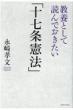 教養として
読んでおきたい
「十七条憲法」
永﨑孝文